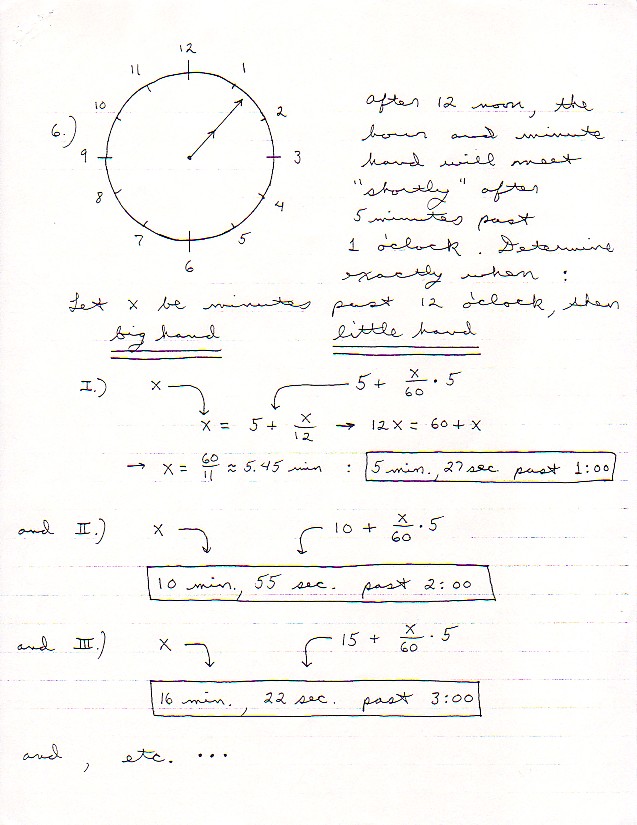 6.)
12
11 1
10 2
9 3
8 4
7 5
6
After 12 noon, the
hour and minute
hand will meet
"shortly" after
5 minutes past
1 o'clock. Determine
exactly when :
Let x be minutes past 12 o'clock, then
big hand little hand
I.) x 5 + x/60 · 5
x = 5 + x/12 → 12x = 60 + x
→ x = 60/11 ≈ 5.45 min : 5 min., 27 sec. past 1:00
and II.) x 10 + x/60 · 5
10 min., 55 sec. past 2:00
and III.) x 15 + x/60 · 5
16 min., 22 sec. past 3:00
and, etc. ...